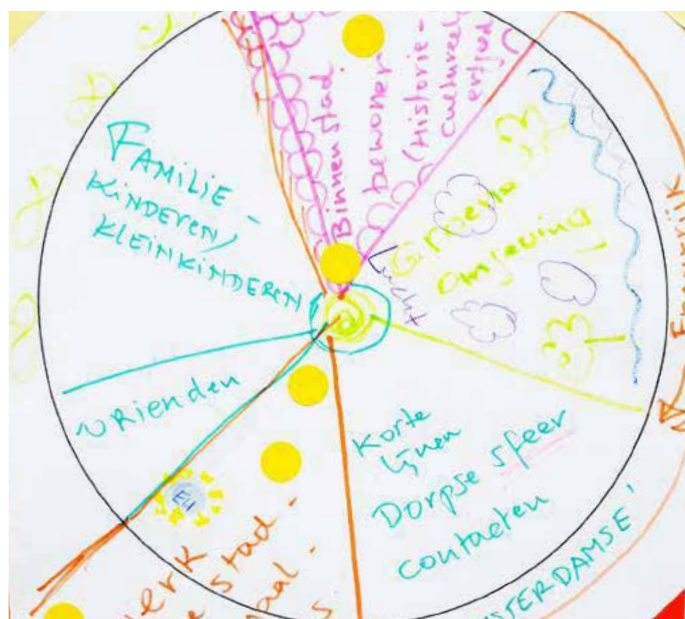 FAMILIE -
KINDEREN,
KLEINKINDEREN
Binnenstad
bewoner
(Historie-
cultureel
erfgoed
Lucht
Groene
omgeving
Frankrijk
vrienden
Korte
lijnen
Dorpse sfeer
contacten
EU
werk
stad-
STERDAMSE'